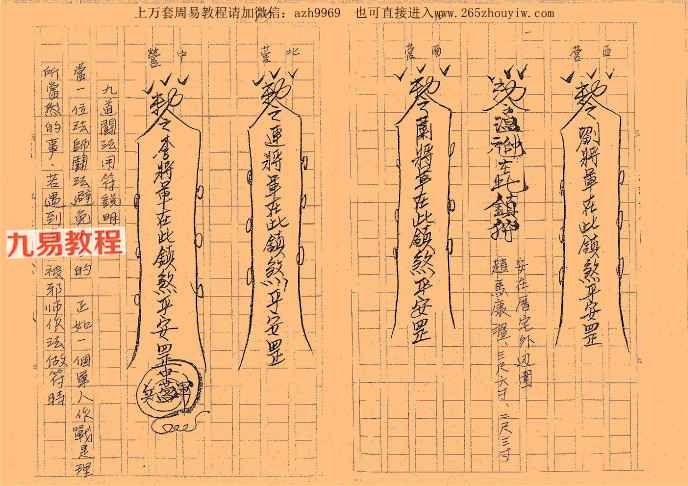 上万套周易教程请加微信：azh9969 也可直接进入www.265zhouyiw.com
西營
勅令劉將軍在此鎮煞平安罡
安在厝宅外边圍
趙馬康溫、三尺六寸、二尺三寸
勅令溫
在此鎮
西營
勅令蘭將軍在此鎮煞平安罡
北營
勅令連將軍在此鎮煞平安罡
中營
勅令李將軍在此鎮煞平安罡
九道鬪法用符說明
當一位法師鬪法避免 的 正如一個軍人作戰是理
所當然的事．若遇到 被邪师作法做符時
九易教程